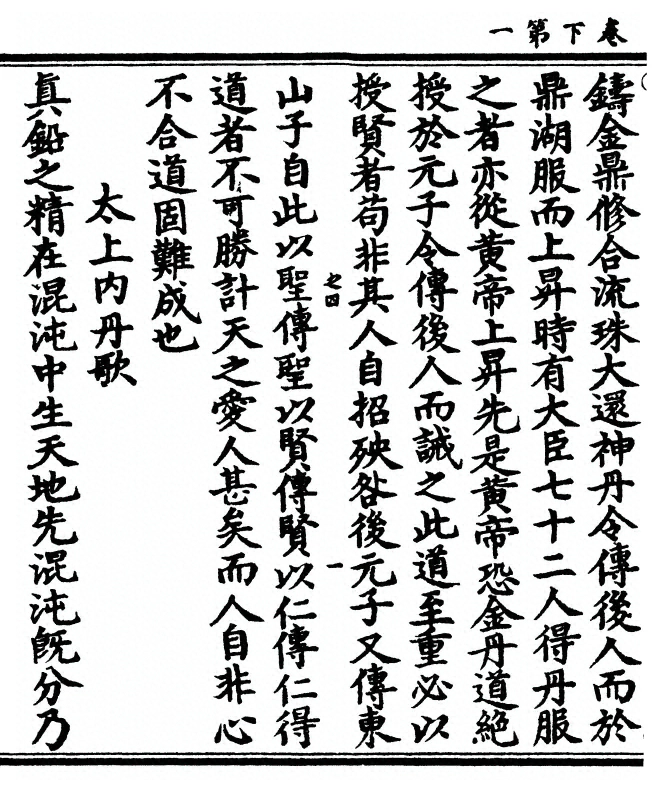 卷下第一
鑄金鼎修合流珠大還神丹令傳後人而於
鼎湖服而上昇時有大臣七十二人得丹服
之者亦從黃帝上昇先是黃帝恐金丹道絕
授於元子令傳後人而誡之此道至重必以
授賢者苟非其人自招殃咎後元子又傳東
之四
一
山子自此以聖傳聖以賢傳賢以仁傳仁得
道者不可勝計天之愛人甚矣而人自非心
不合道固難成也
太上內丹歌
真鉛之精在混沌中生天地先混沌旣分乃